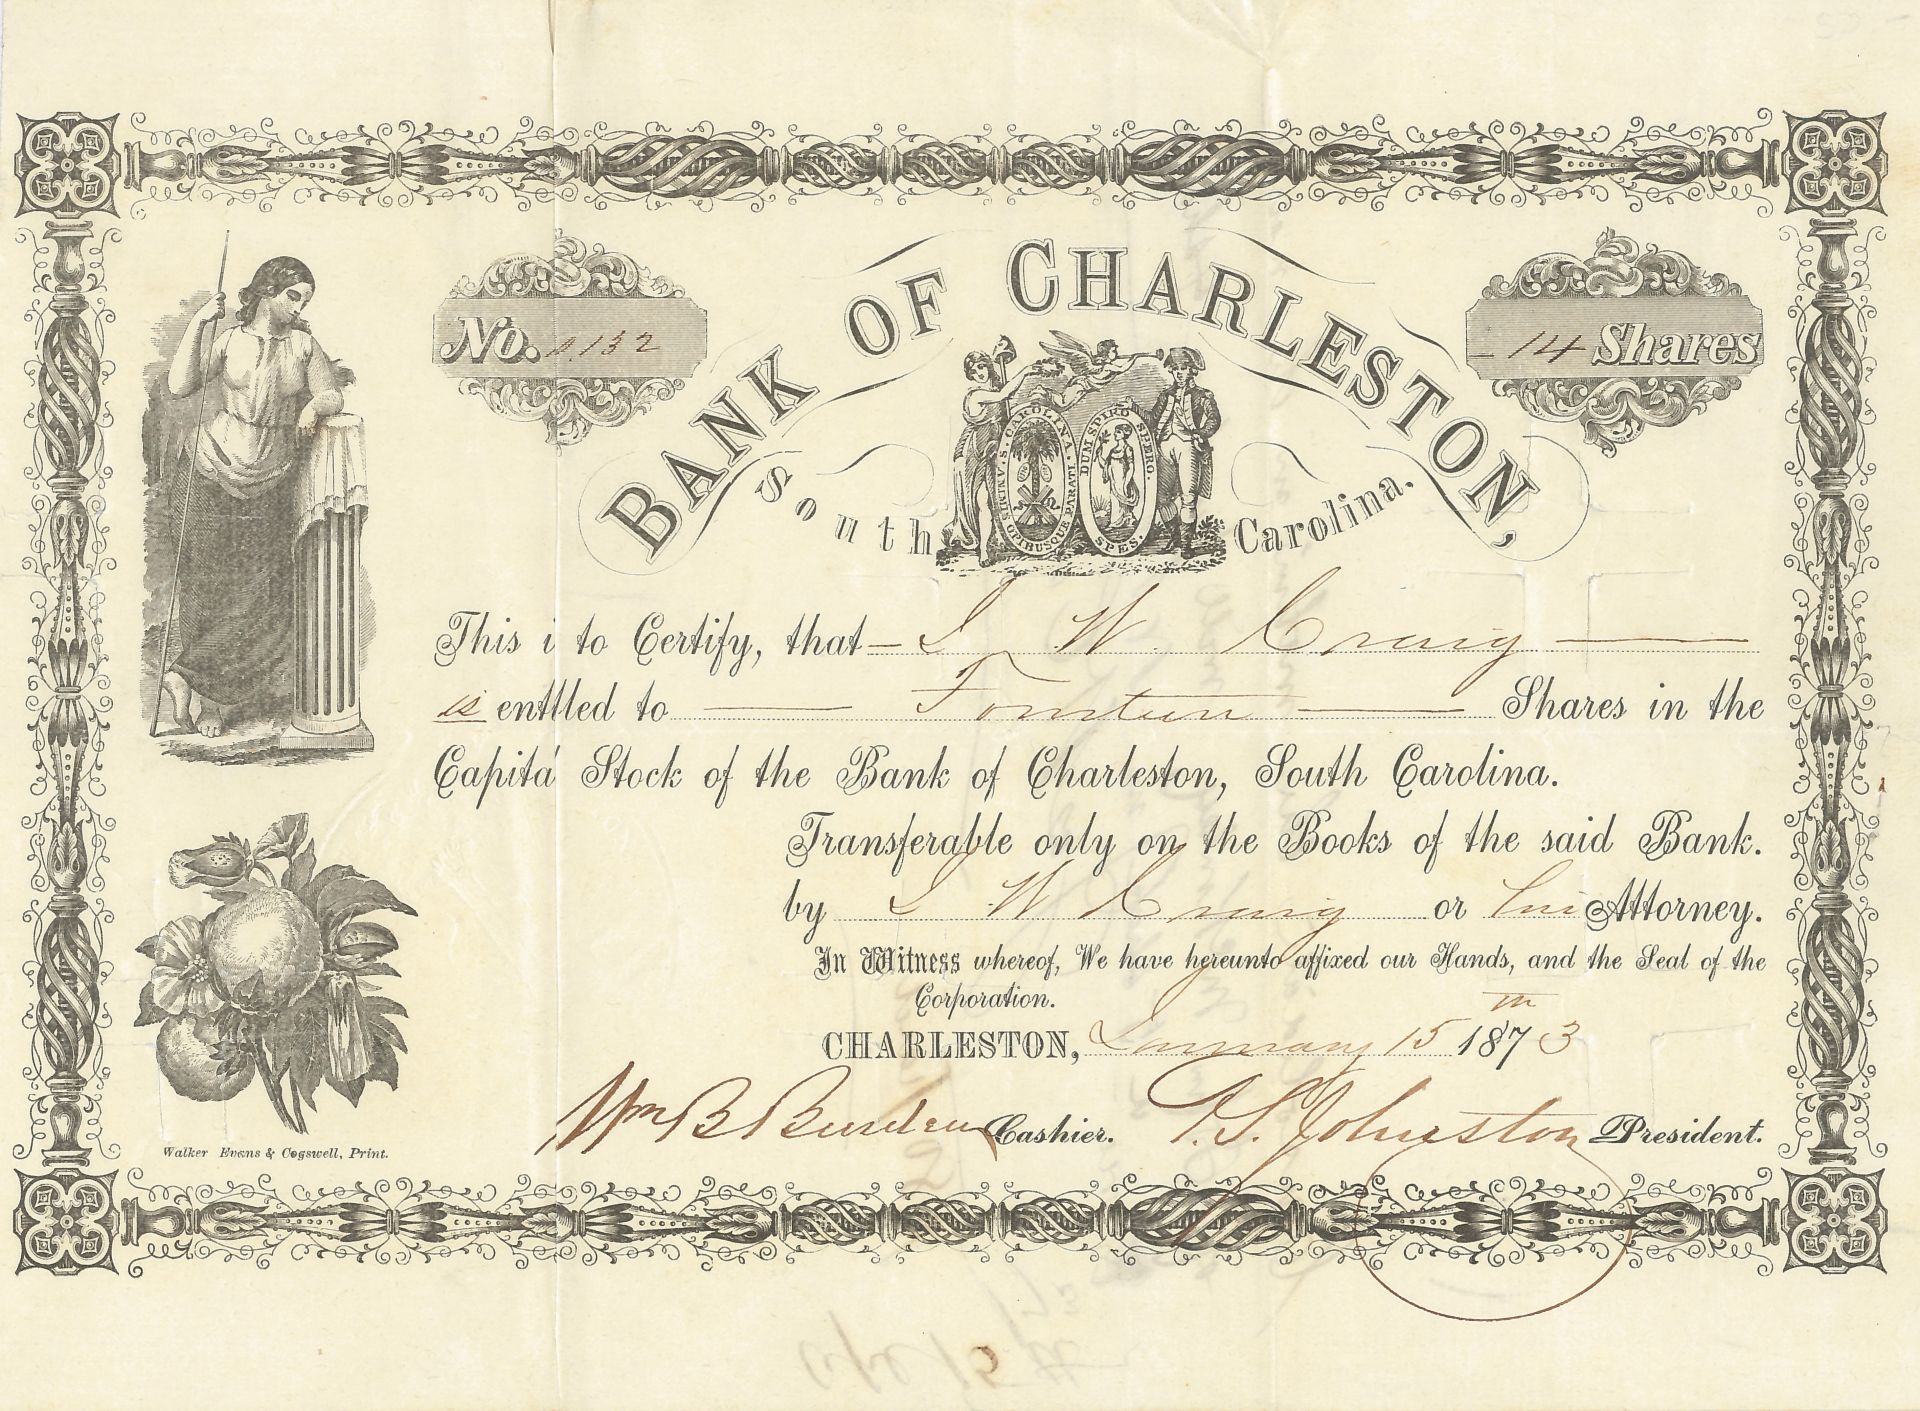 BANK OF CHARLESTON,
South Carolina.
No. A.132
14 Shares
S. CAROLINA. ANIMIS OPIBUSQUE PARATI.
DUM SPIRO SPERO. SPES.
This i to Certify, that J W. Craig
is entitled to Fourteen Shares in the
Capital Stock of the Bank of Charleston, South Carolina.
Transferable only on the Books of the said Bank.
by J W Craig or his Attorney.
In Witness whereof, We have hereunto affixed our Hands, and the Seal of the
Corporation.
CHARLESTON, January 15th 1873
Wm B Burden Cashier. T. S. Johnston President.
Walker Evans & Cogswell, Print.